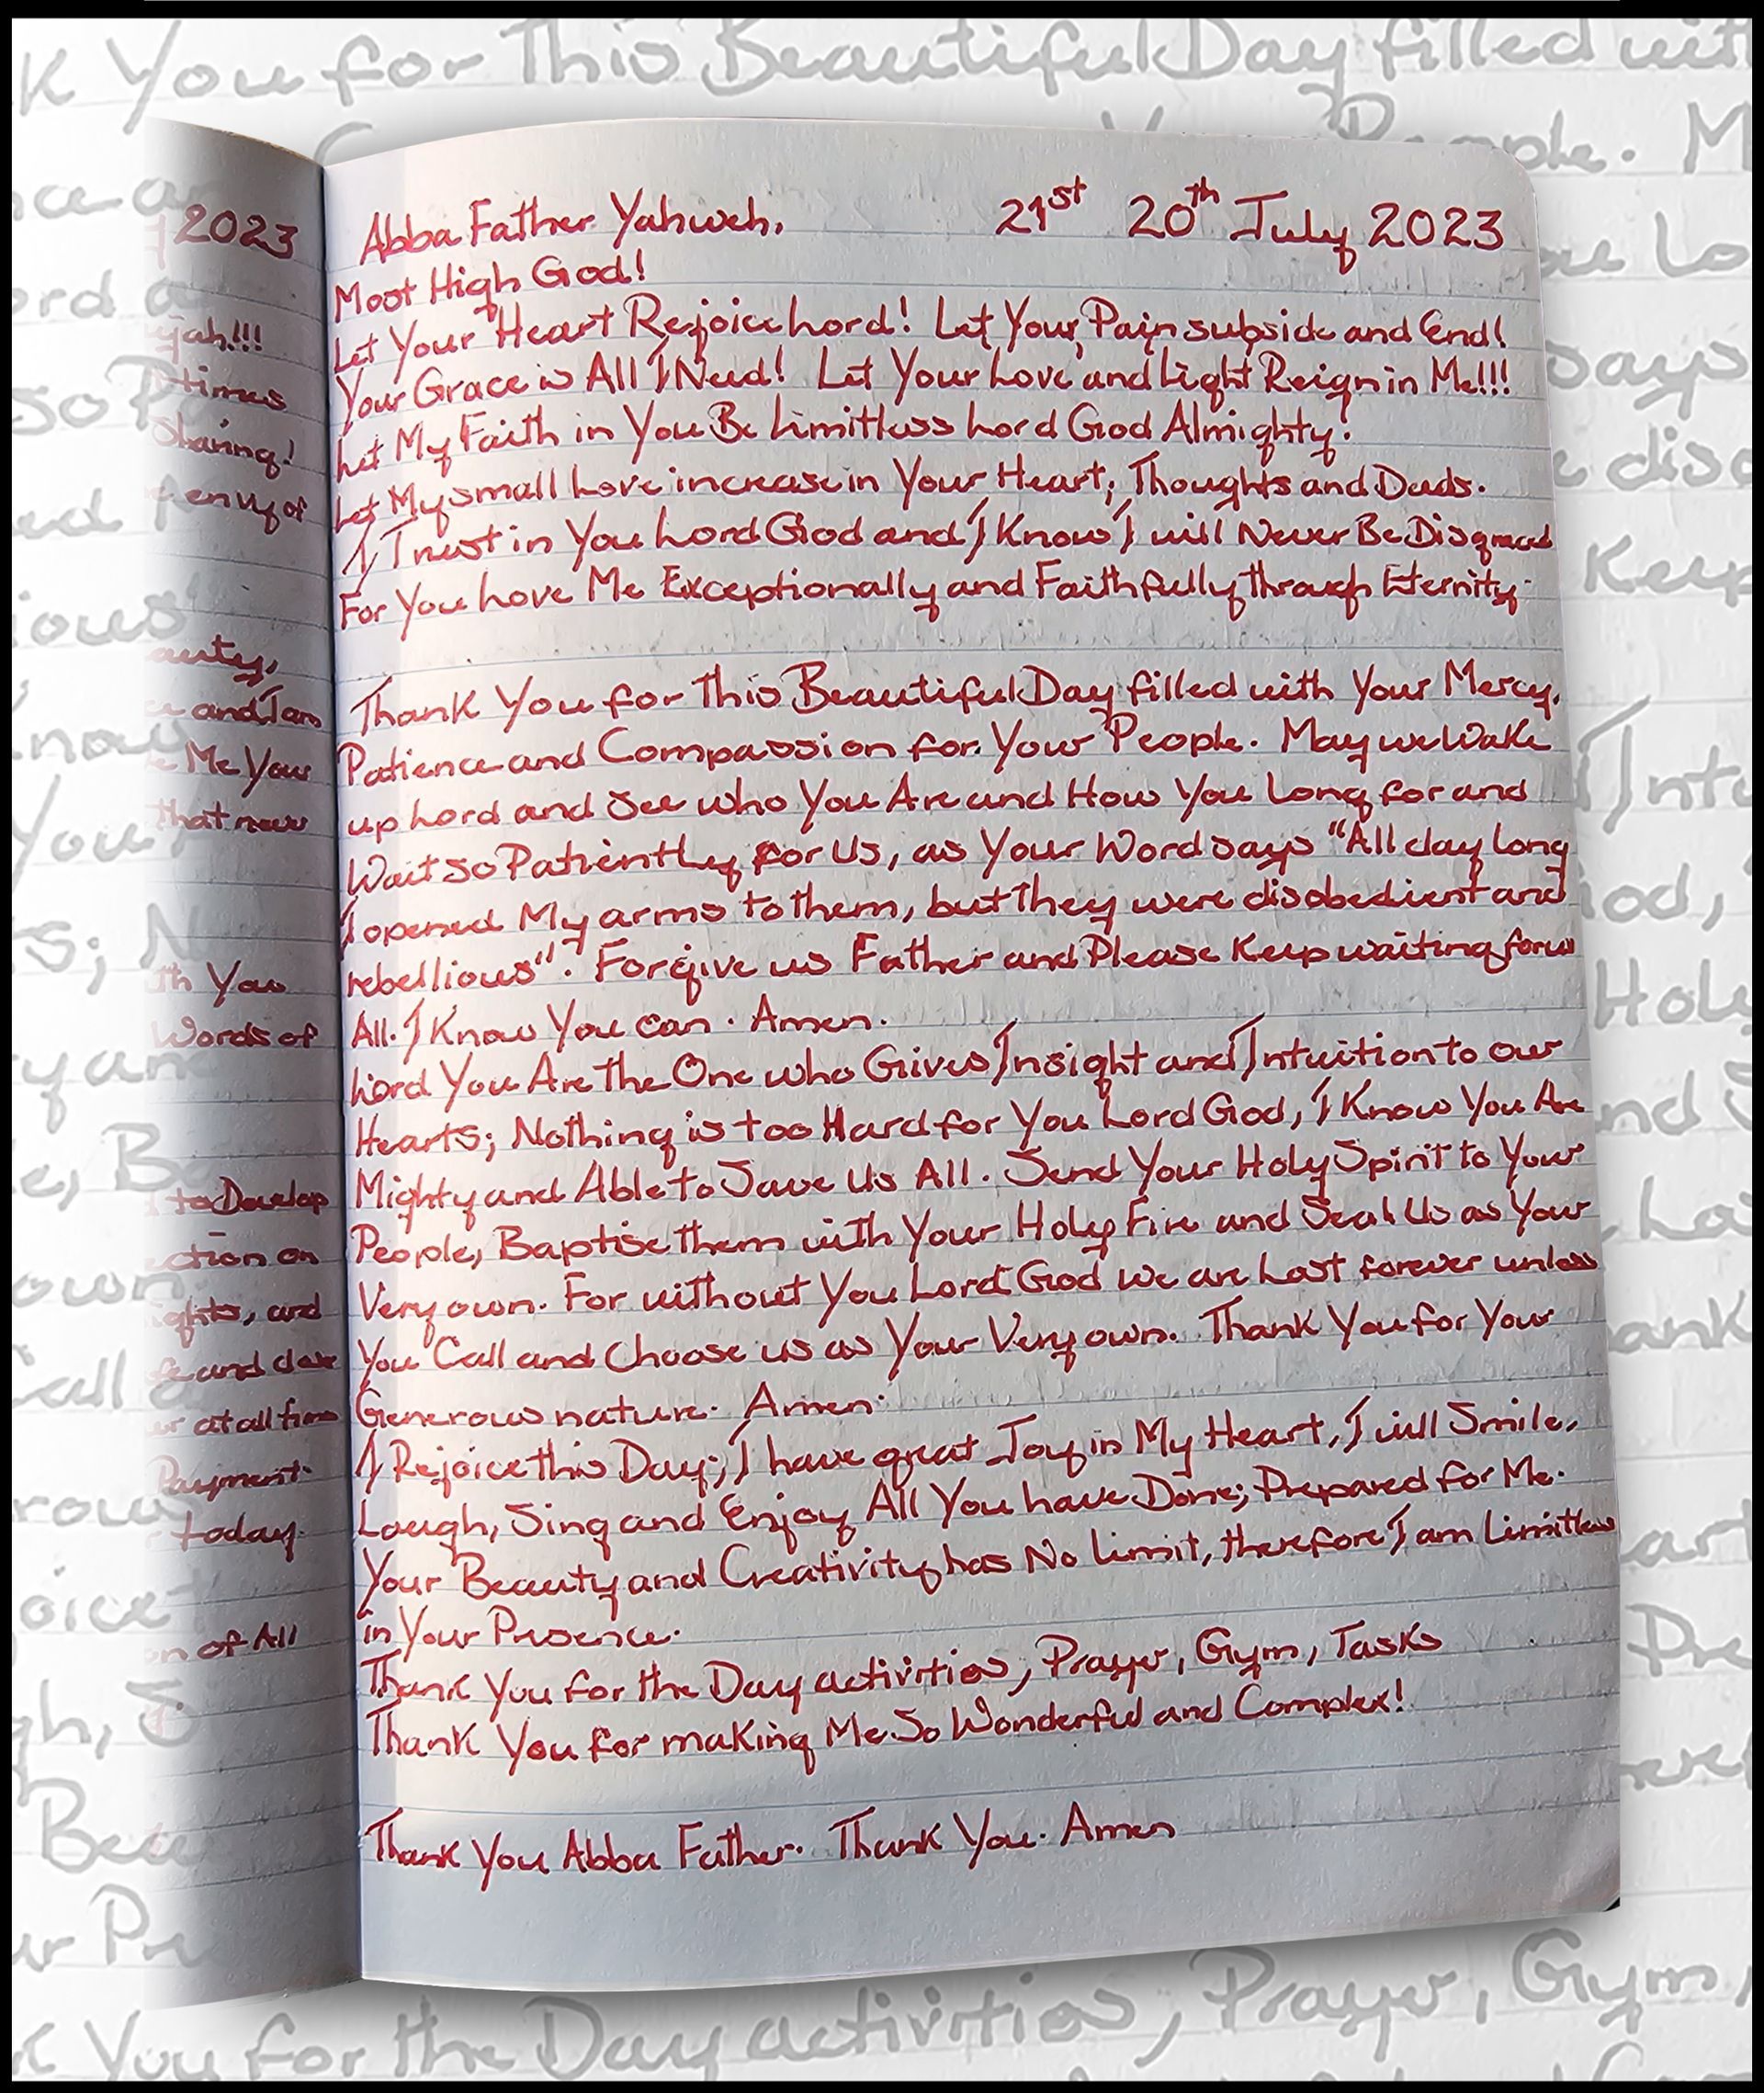 2023
jah!!!
times
Sharing!
envy of
auty,
and I am
Me Your
that now
th You
Words of
to Develop
ction on
ghts, and
and
at all
Payment.
today.
on of All
Abba Father Yahweh, 21st 20th July 2023
Most High God!
Let Your Heart Rejoice Lord! Let Your Pain subside and End!
Your Grace is All I Need! Let Your Love and Light Reign in Me!!!
Let My Faith in You Be Limitless Lord God Almighty!
Let My small Love increase in Your Heart; Thoughts and Deeds.
I Trust in You Lord God and I Know I will Never Be Disgraced
For You Love Me Exceptionally and Faithfully through Eternity.
Thank You for This Beautiful Day filled with Your Mercy,
Patience and Compassion for Your People. May we Wake
up Lord and See who You Are and How You Long for and
Wait so Patiently for Us, as Your Word says "All day long
I opened My arms to them, but they were disobedient and
rebellious". Forgive us Father and Please Keep waiting for us
All. I Know You can. Amen.
Lord You Are the One who Gives Insight and Intuition to our
Hearts; Nothing is too Hard for You Lord God, I Know You Are
Mighty and Able to Save Us All. Send Your Holy Spirit to Your
People, Baptise them with Your Holy Fire and Seal Us as Your
Very own. For without You Lord God we are Lost forever unless
You Call and Choose us as Your Very own. Thank You for Your
Generous nature. Amen.
I Rejoice this Day; I have great Joy in My Heart, I will Smile,
Laugh, Sing and Enjoy All You have Done; Prepared for Me.
Your Beauty and Creativity has No Limit, therefore I am Limitless
in Your Presence.
Thank You for the Day activities, Prayer, Gym, Tasks
Thank You for making Me So Wonderful and Complex!
Thank You Abba Father. Thank You. Amen